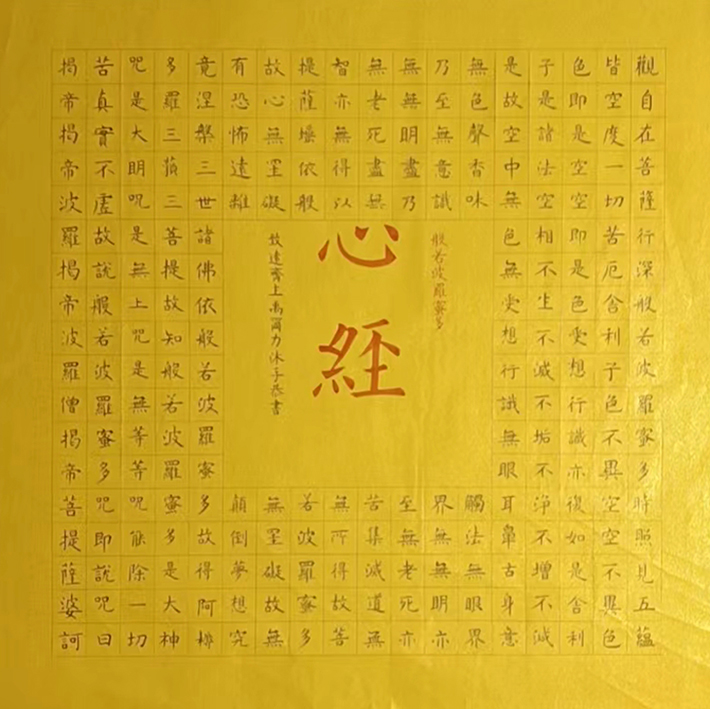 觀自在菩薩行深般若波羅蜜多時照見五蘊
皆空度一切苦厄舍利子色不異空空不異色
色即是空空即是色受想行識亦復如是舍利
子是諸法空相不生不滅不垢不淨不增不減
是故空中無色無受想行識無眼耳鼻舌身意
無色聲香味
觸法無眼界
乃至無意識
界無無明亦
無無明盡乃
至無老死亦
無老死盡無
苦集滅道無
智亦無得以
無所得故菩
提薩埵依般
若波羅蜜多
故心無罣礙
無罣礙故無
有恐怖遠離
顛倒夢想究
竟涅槃三世諸佛依般若波羅蜜多故得阿耨
多羅三藐三菩提故知般若波羅蜜多是大神
咒是大明咒是無上咒是無等等咒能除一切
苦真實不虛故說般若波羅蜜多咒即說咒曰
揭帝揭帝波羅揭帝波羅僧揭帝菩提薩婆訶
般若波羅蜜多
心經
沐手恭書